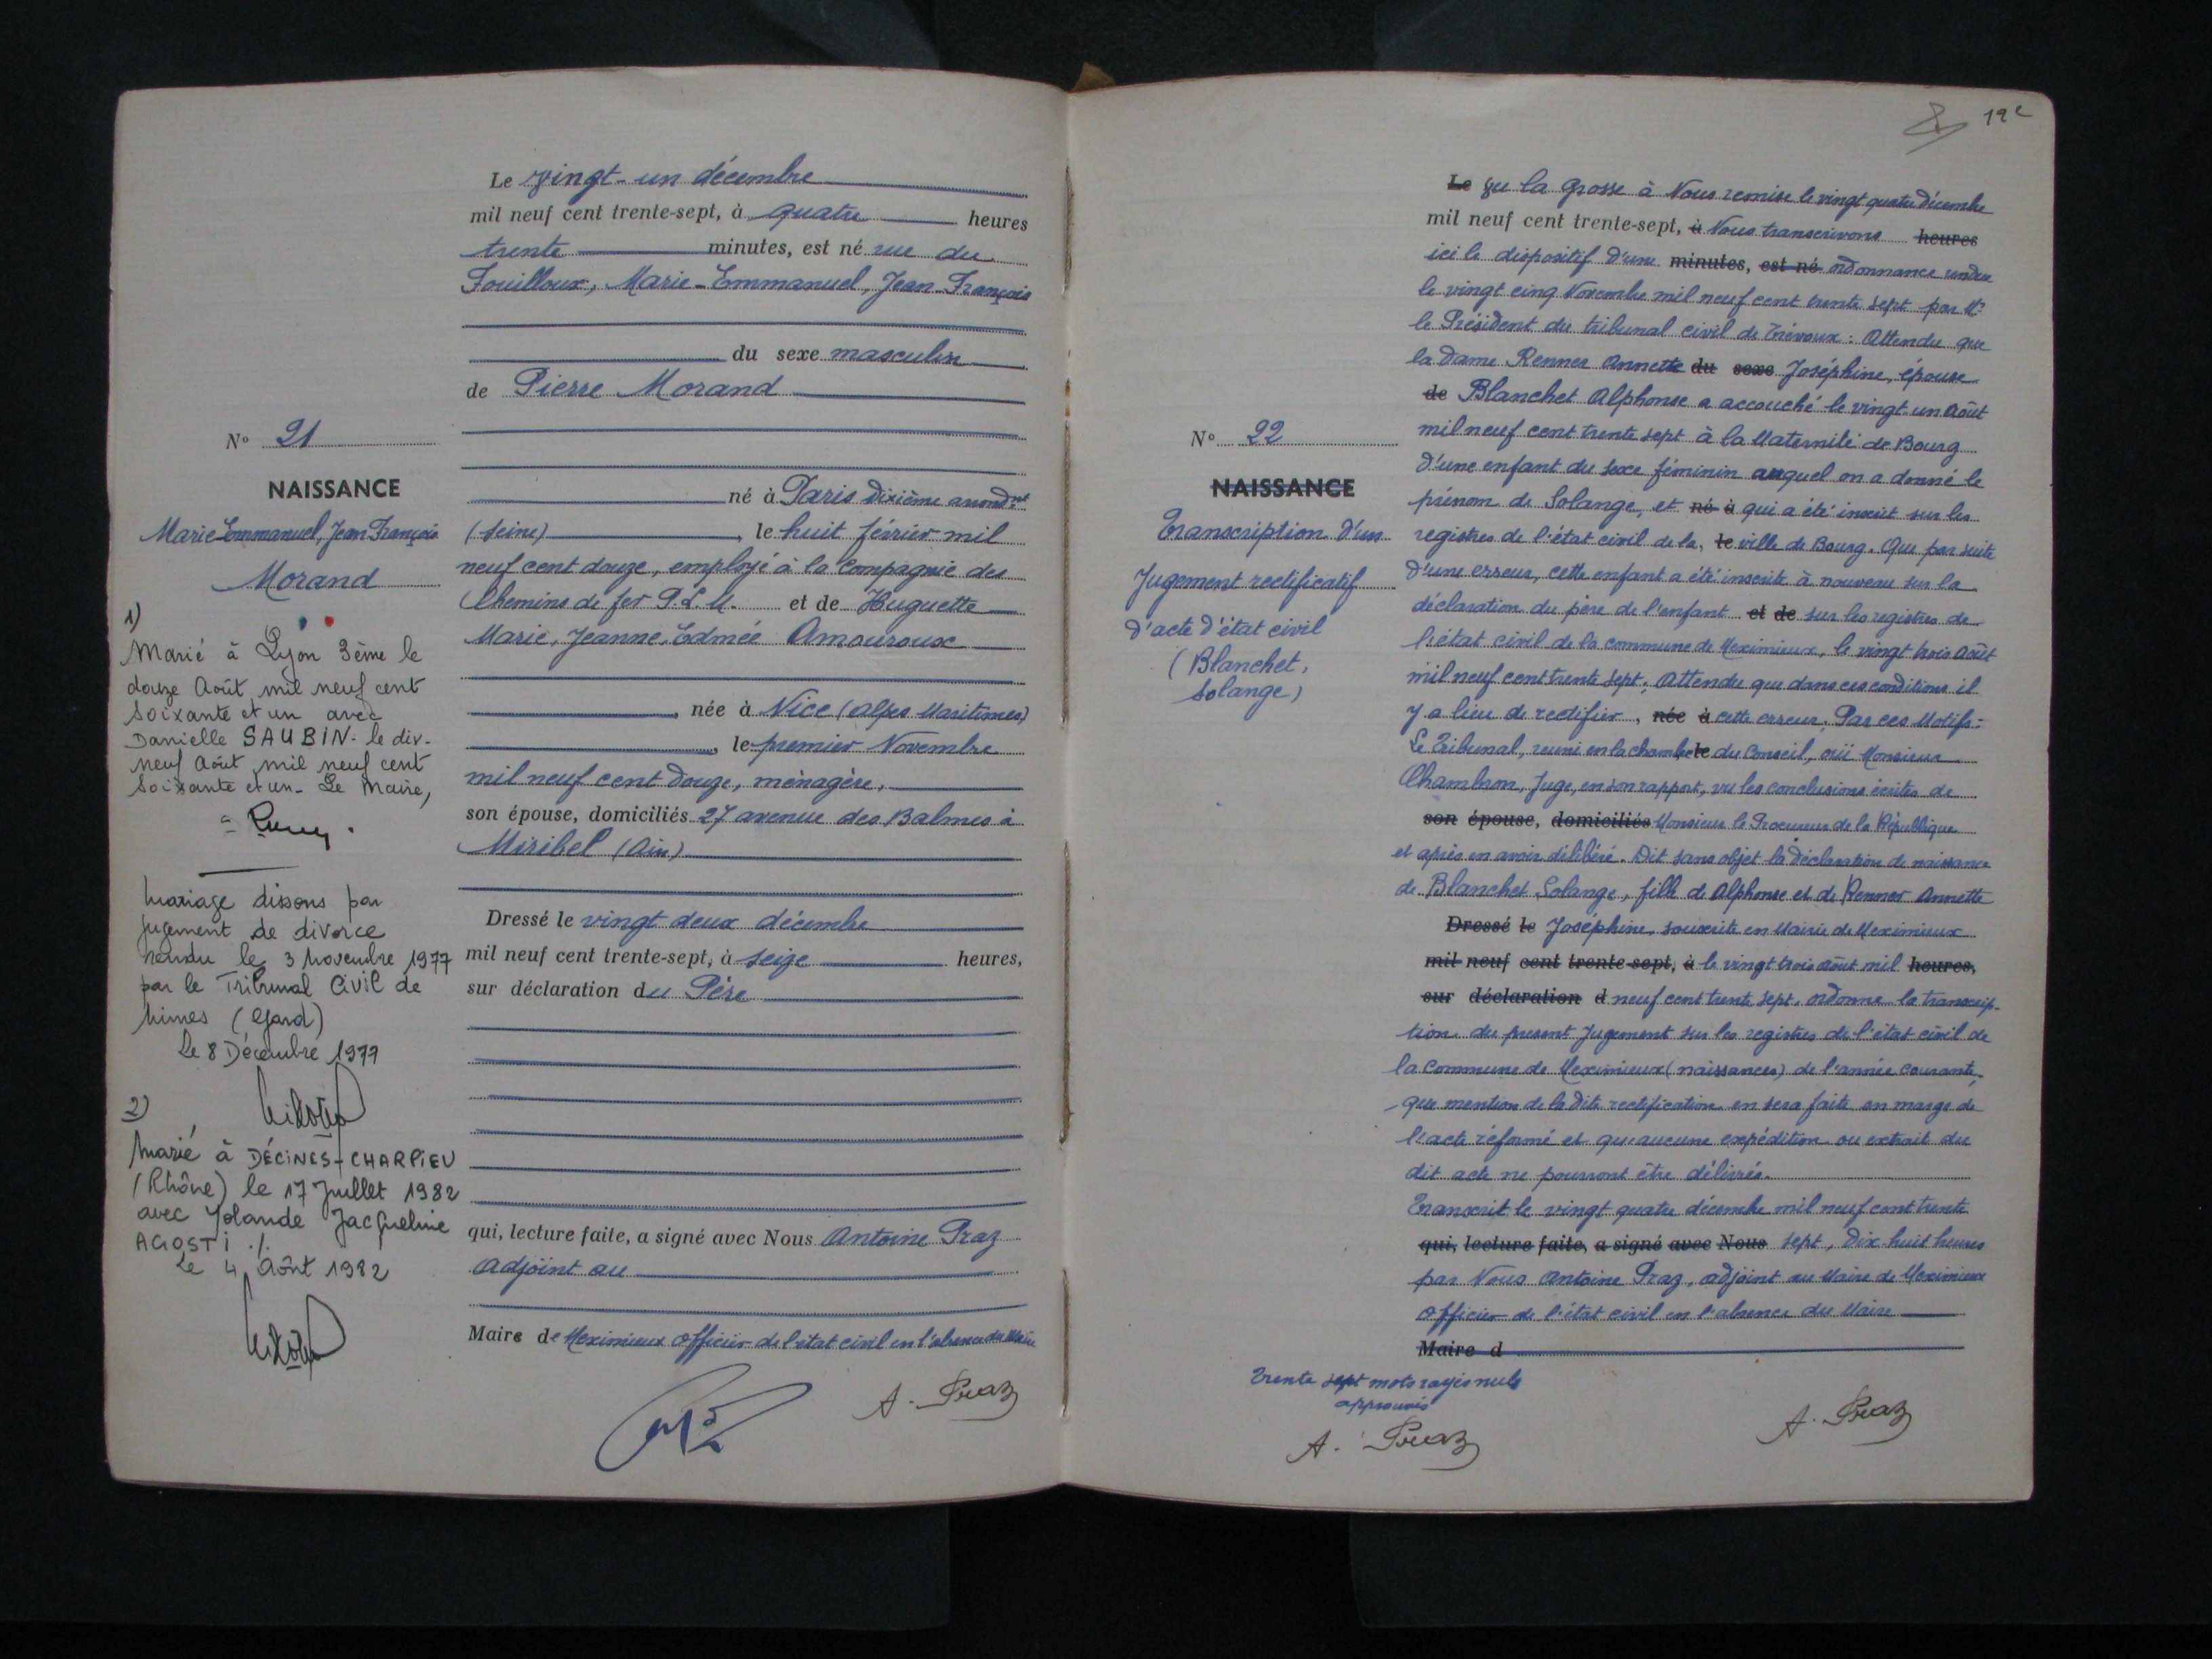 Le vingt-un décembre
mil neuf cent trente-sept, à quatre heures
trente minutes, est né rue du
Fouilloux, Marie-Emmanuel, Jean-François
du sexe masculin
de Pierre Morand
né à Paris dixième arrondt
(Seine), le huit février mil
neuf cent douze, employé à la Compagnie des
Chemins de fer P.L.M. et de Huguette
Marie, Jeanne, Edmée Amouroux
, née à Nice (Alpes Maritimes)
, le premier Novembre
mil neuf cent douze, ménagère,
son épouse, domiciliés 27 avenue des Balmes à
Miribel (Ain)
Dressé le vingt deux décembre
mil neuf cent trente-sept, à seize heures,
sur déclaration du Père
qui, lecture faite, a signé avec Nous Antoine Praz
adjoint au
Maire de Meximieux officier de l'état civil en l'absence du Maire
A. Praz
No 21
NAISSANCE
Marie Emmanuel, Jean François
Morand
1)
Marié à Lyon 3ème le
douze Août mil neuf cent
soixante et un avec
Danielle SAUBIN - le dix-
neuf Août mil neuf cent
soixante et un - Le Maire,
Mariage dissous par
jugement de divorce
rendu le 3 Novembre 1977
par le Tribunal Civil de
Nîmes (Gard)
Le 8 Décembre 1977
2)
Marié à DÉCINES-CHARPIEU
(Rhône) le 17 Juillet 1982
avec Yolande Jacqueline
AGOSTI ./.
Le 4 Août 1982
19
No 22
NAISSANCE
Transcription d'un
Jugement rectificatif
d'acte d'état civil
(Blanchet,
Solange)
Le Vu la Grosse à Nous remise le vingt quatre décembre
mil neuf cent trente-sept, à Nous transcrivons heures
ici le dispositif d'une minutes, est né ordonnance rendue
le vingt cinq Novembre mil neuf cent trente sept par Mr
le Président du tribunal civil de Trévoux : Attendu que
la dame Renner Annette du sexe Joséphine, épouse
de Blanchet Alphonse a accouché le vingt-un Août
mil neuf cent trente sept à la Maternité de Bourg
d'une enfant du sexe féminin auquel on a donné le
prénom de Solange, et né à qui a été inscrit sur les
registres de l'état civil de la, le ville de Bourg. Que par suite
d'une erreur, cette enfant a été inscrite à nouveau sur la
déclaration du père de l'enfant et de sur les registres de
l'état civil de la commune de Meximieux, le vingt trois Août
mil neuf cent trente sept; Attendu que dans ces conditions il
y a lieu de rectifier, née à cette erreur; Par ces Motifs:
Le Tribunal, réuni en la chambre le du Conseil, ouï Monsieur
Chambron, Juge, en son rapport, vu les conclusions écrites de
son épouse, domiciliés Monsieur le Procureur de la République
et après en avoir délibéré. Dit sans objet la déclaration de naissance
de Blanchet Solange, fille de Alphonse et de Renner Annette
Dressé le Joséphine, souscrite en Mairie de Meximieux
mil neuf cent trente-sept, à le vingt trois Août mil heures,
sur déclaration d neuf cent trente sept, ordonne la transcrip-
tion du présent Jugement sur les registres de l'état civil de
la Commune de Meximieux (naissances) de l'année courante,
que mention de la dite rectification en sera faite en marge de
l'acte réformé et qu'aucune expédition ou extrait du
dit acte ne pourront être délivrés.
Transcrit le vingt quatre décembre mil neuf cent trente
qui, lecture faite, a signé avec Nous sept, dix huit heures
par Nous Antoine Praz, adjoint au Maire de Meximieux
officier de l'état civil en l'absence du Maire
Maire d
Trente sept mots rayés nuls
approuvés
A. Praz
A. Praz